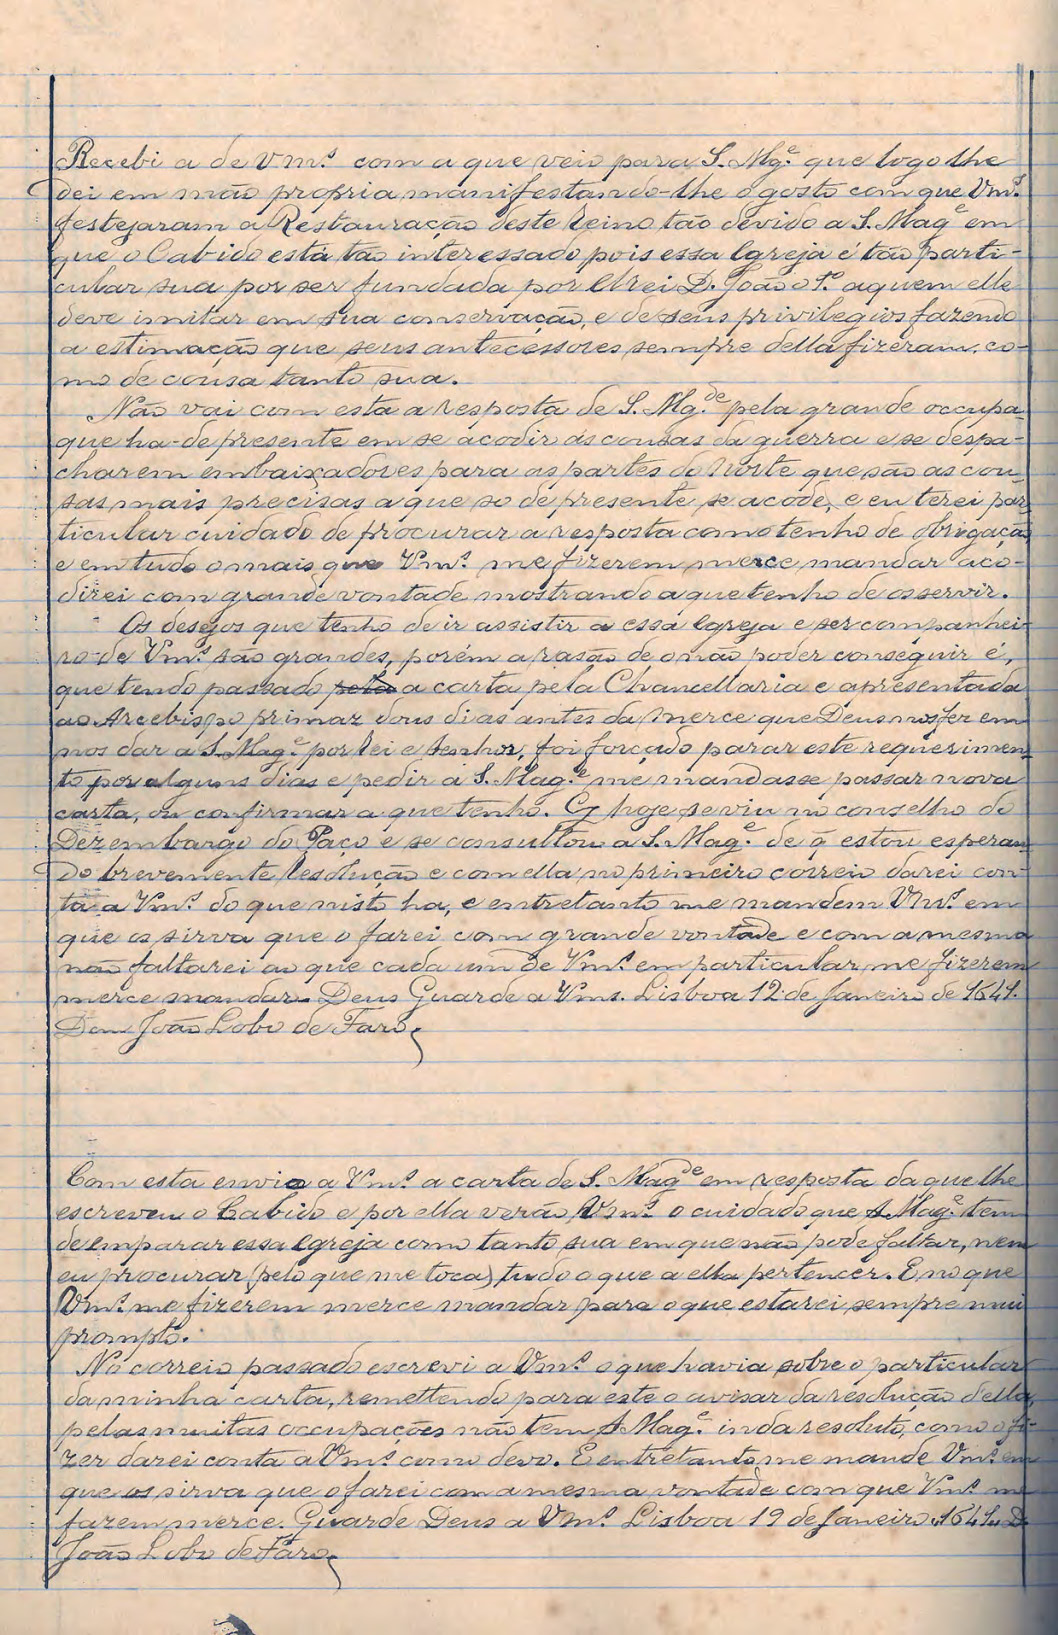 Recebi a de Vm.s com a que veio para S. Mg.e que logo lhe
dei em mão propria manifestando-lhe o gosto com que Vm.s
festejaram a Restauração deste Reino tão devido a S. Mag.e em
que o Cabido está tão interessado pois essa Igreja é tão parti-
cular sua por ser fundada por ElRei D. João o 1.º a quem elle
deve imitar em sua conservação, e de seus privilegios fazendo
a estimação que seus antecessores sempre della fizeram, co-
mo de cousa tanto sua.
Não vai com esta a resposta de S. Mg.de pela grande occupa
que ha-de presente em se acodir ás cousas da guerra e se despa-
charem embaixadores para as partes do Norte que são as cou-
sas mais precisas a que so de presente se acode, e eu terei par
ticular cuidado de procurar a resposta como tenho de obrigação
e em tudo o mais que Vm.s me fizerem merce mandar aco-
direi com grande vontade mostrando a que tenho de os servir.
Os desejos que tenho de ir assistir a essa Igreja e ser companhei-
ro de Vm.s são grandes, porém a rasão de o não poder conseguir é,
que tendo passado pela a carta pela Chancellaria e apresentada
ao Arcebispo primaz dous dias antes da merce que Deus nos fez em
nos dar a S. Mag.e por Rei e Senhor, foi forçado parar este requerimen
to por alguns dias e pedir a S. Mag.e me mandasse passar nova
carta, ou confirmar a que tenho. Q hoje se viu no conselho do
Dezembargo do Paço e se consultou a S. Mag.e de q̃ estou esperan
do brevemente Resolução e com ella no primeiro correio darei con
ta a Vm.s do que nisto ha, e entretanto me mandem Vm.s em
que os sirva que o farei com grande vontade e com a mesma
não faltarei ao que cada um de Vm.s em particular me fizerem
merce mandar. Deus Guarde a Vms. Lisboa 12 de Janeiro de 1641.
Dom João Lobo de Faro
Com esta envio a Vm.s a carta de S. Mag.de em resposta da que lhe
escreveu o Cabido e por ella verão Vm.s o cuidado que S. Mag.e tem
de emparar essa Igreja como tanto sua em que não pode faltar, nem
eu procurar (pelo que me toca) tudo o que a ella pertencer. E no que
Vm.s me fizerem merce mandar para o que estarei sempre mui
prompto.
No correio passado escrevi a Vm.s o que havia sobre o particular
da minha carta, remettendo para este o avisar da resolução della,
pelas muitas occupações não tem S. Mag.e inda resoluto, como o fi-
zer darei conta a Vm.s como devo. E entretanto me mande Vm.s em
que os sirva que o farei com a mesma vontade com que Vm.s me
fazem merce. Guarde Deus a Vm.s Lisboa 19 de Janeiro 1641. D.
João Lobo de Faro